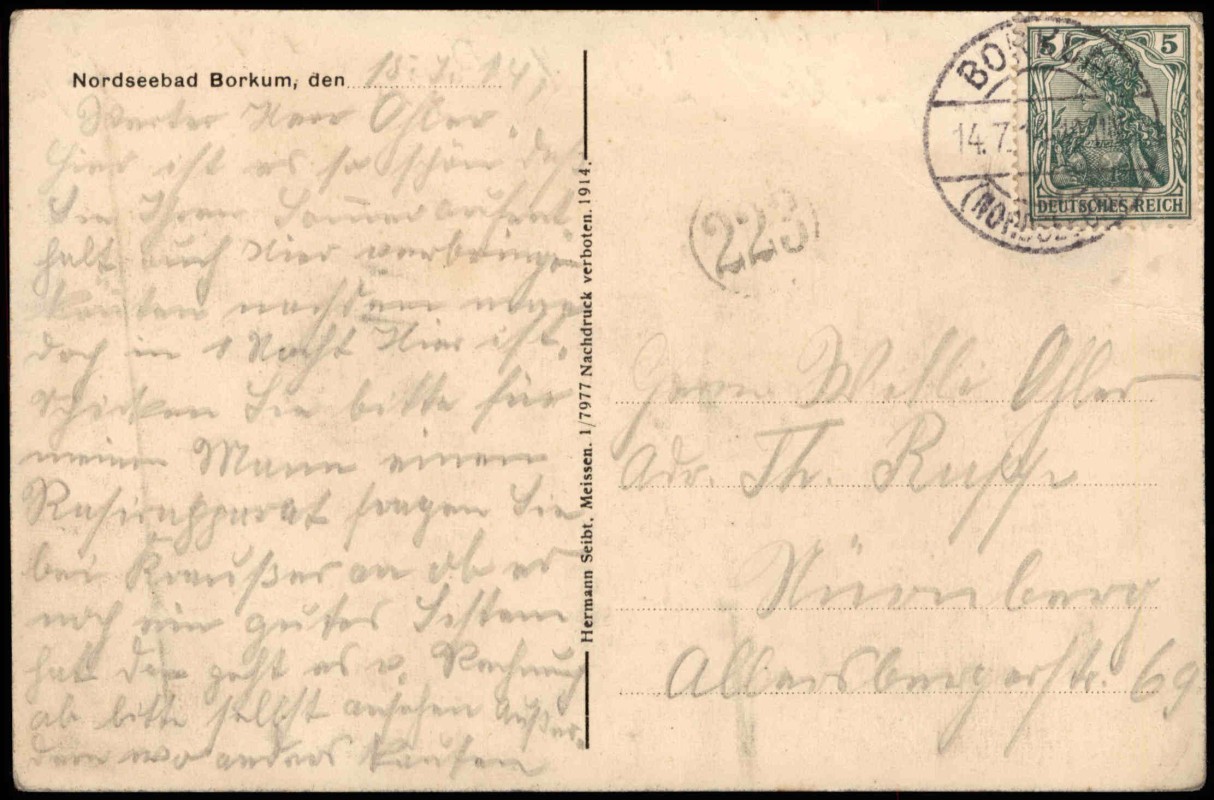 Nordseebad Borkum, den 15.7.14.
Werter Herr Ofler.
Hier ist es so schön daß
Sie Ihren Sommeraufent
halt auch Hier verbringen
könten nachdem man
doch in 1 Nacht Hier ist.
schicken Sie bitte für
meinen Mann einen
Rasierapparat fragen Sie
bei Kraußer an ob er
noch ein gutes Sistem
hat dan geht es v. Rechnung
ab bitte selbst ansehen außer
dem wo anders kaufen
Hermann Seibt, Meissen. 1/7977 Nachdruck verboten. 1914.
BORKUM
14.7.
(NORDSEE)
5 5
DEUTSCHES REICH
(223)
Herrn Willi Ofler
Adr. Th.
Nürnberg
Allersbergerstr. 69